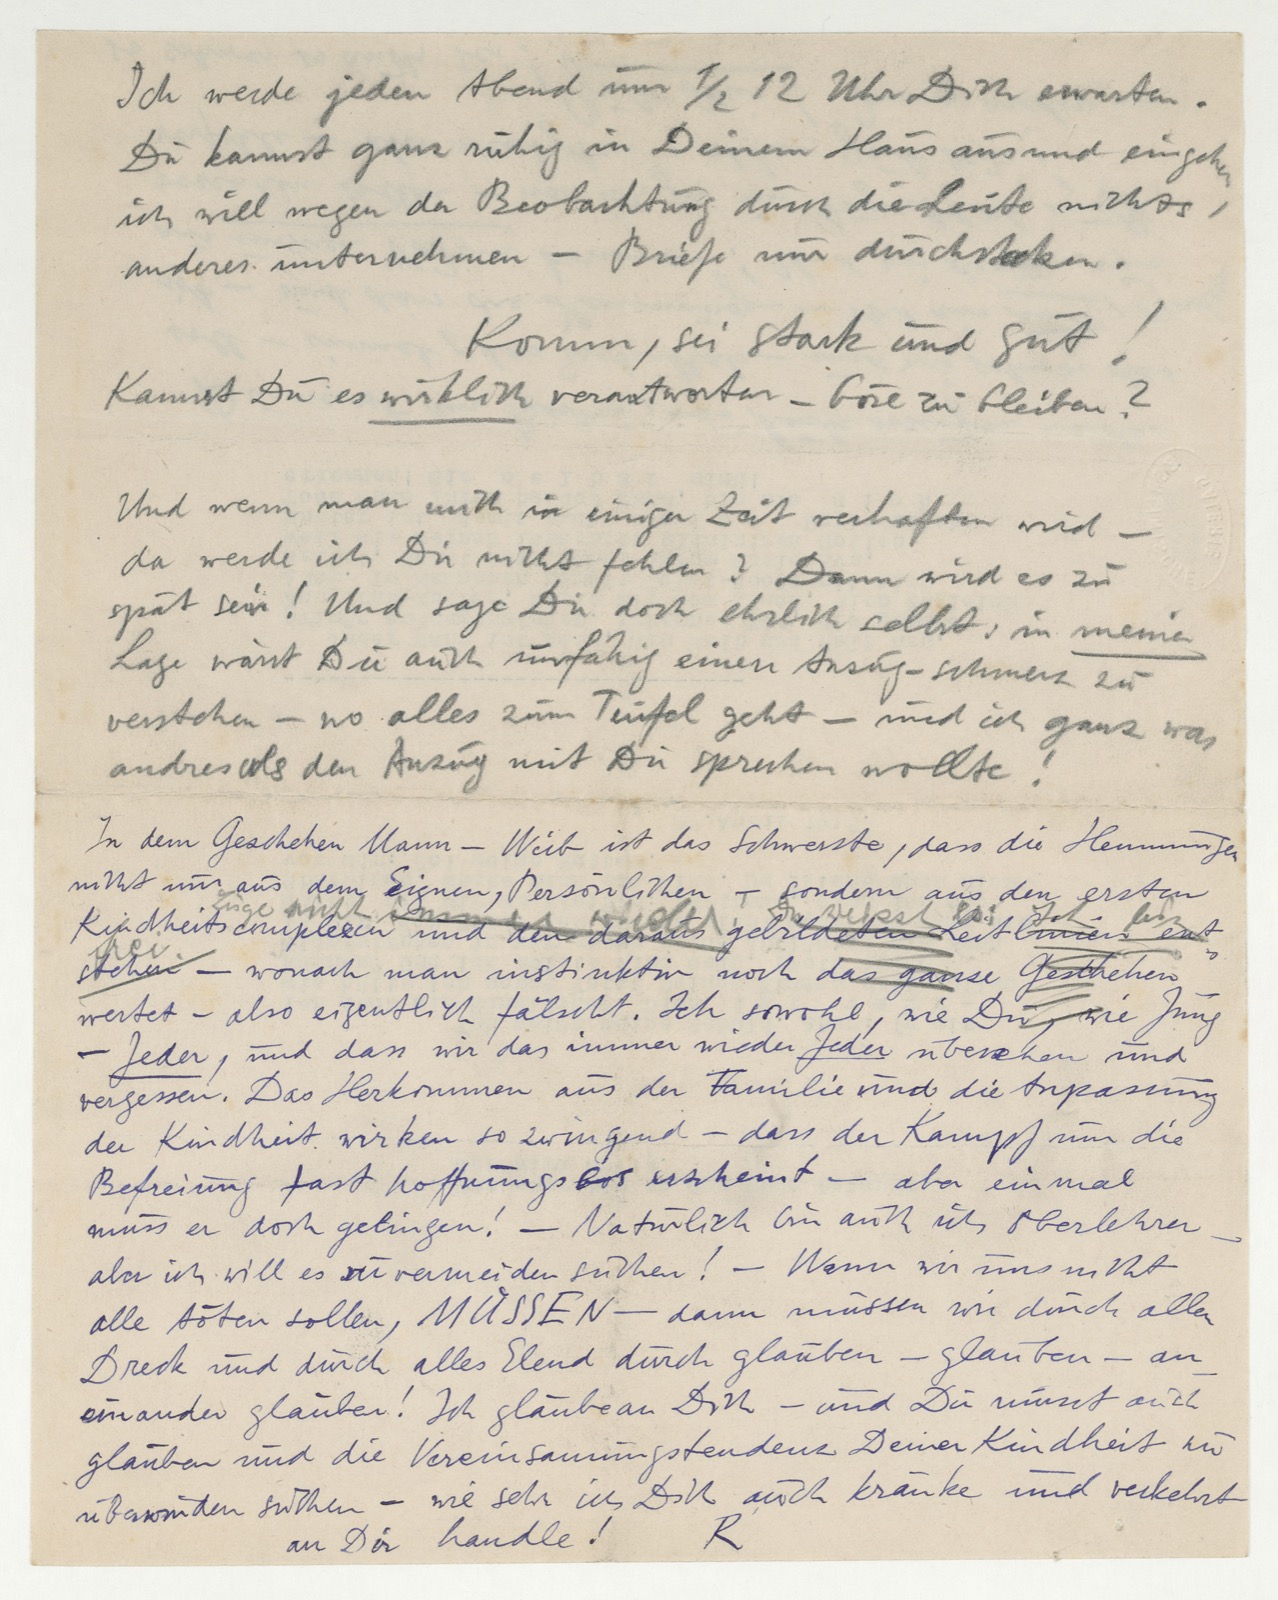 Ich werde jeden Abend um 1/2 12 Uhr Dich erwarten.
Du kannst ganz ruhig in Deinem Haus aus und eingehen
ich will wegen der Beobachtung durch die Leute nichts,
anderes unternehmen – Briefe nur durchstecken.
Komm, sei stark und gut!
Kannst Du es wirklich verantworten – böse zu bleiben?
Und wenn man mich in einiger Zeit verhaften wird –
da werde ich Dir nicht fehlen? Dann wird es zu
spät sein! Und sage Dir doch ehrlich selbst, in meiner
Lage wärst Du auch unfähig einen Anzug-schmerz zu
verstehen – wo alles zum Teufel geht – und ich ganz was
andres als den Anzug mit Dir sprechen wollte!
In dem Geschehen Mann – Weib ist das Schwerste, dass die Hemmungen
nicht nur aus dem Eignen, Persönlichen – sondern aus den ersten
nicht immer wieder, Du weisst
Kindheitscomplexen und den daraus gebildeten Leitlinien ent
stehen – wonach man instinktiv noch das ganze Geschehen
wertet – also eigentlich fälscht. Ich sowohl, wie Du, wie Jung
– Jeder, und dass wir das immer wieder Jeder übersehen und
vergessen. Das Herkommen aus der Familie und die Anpassung
der Kindheit wirken so zwingend – dass der Kampf um die
Befreiung fast hoffnungslos erscheint – aber einmal
muss er doch gelingen! – Natürlich bin auch ich Oberlehrer –
aber ich will es zu vermeiden suchen! – Wenn wir uns nicht
alle töten sollen, MÜSSEN – dann müssen wir durch allen
Dreck und durch alles Elend durch glauben – glauben – an
einander glauben! Ich glaube an Dich – und Du musst auch
glauben und die Vereinsamungstendenz Deiner Kindheit zu
überwinden suchen – wie sehr ich Dich auch kränke und verkehrt
an Dir handle! R